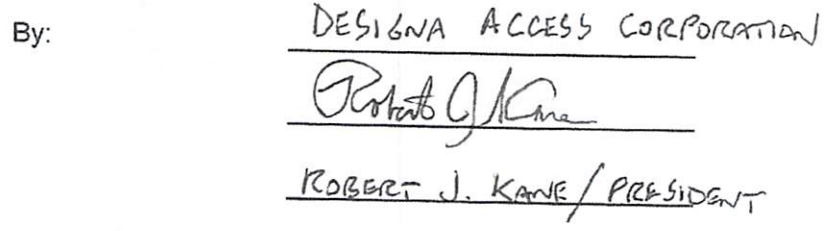 By: DESIGNA ACCESS CORPORATION
Robert J Kane
ROBERT J. KANE / PRESIDENT